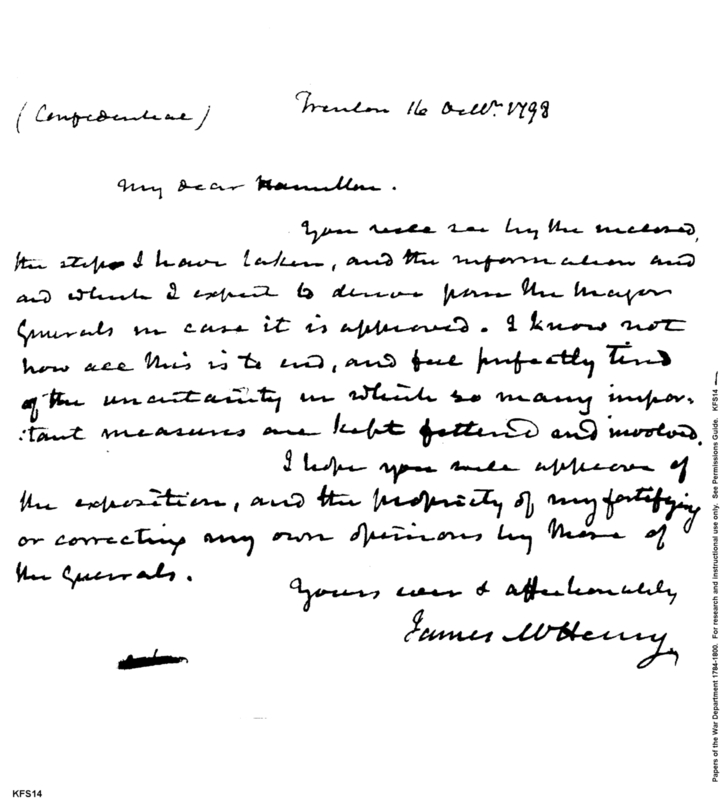 (Confidential)
Trenton 16 Octbr. 1798
My dear Hamilton.
You will see by the inclosed,
the steps I have taken, and the information and
aid which I expect to derive from the Major
Generals in case it is approved. I know not
how all this is to end, and feel perfectly tired
of the uncertainty in which so many impor-
:tant measures are kept fettered and involved.
I hope you will approve of
the exposition, and the propriety of my fortifying
or correcting my own opinions by those of
the Generals.
Yours ever & affectionately
James McHenry
Papers of the War Department 1784-1800. For research and instructional use only. See Permissions Guide. KFS14
KFS14